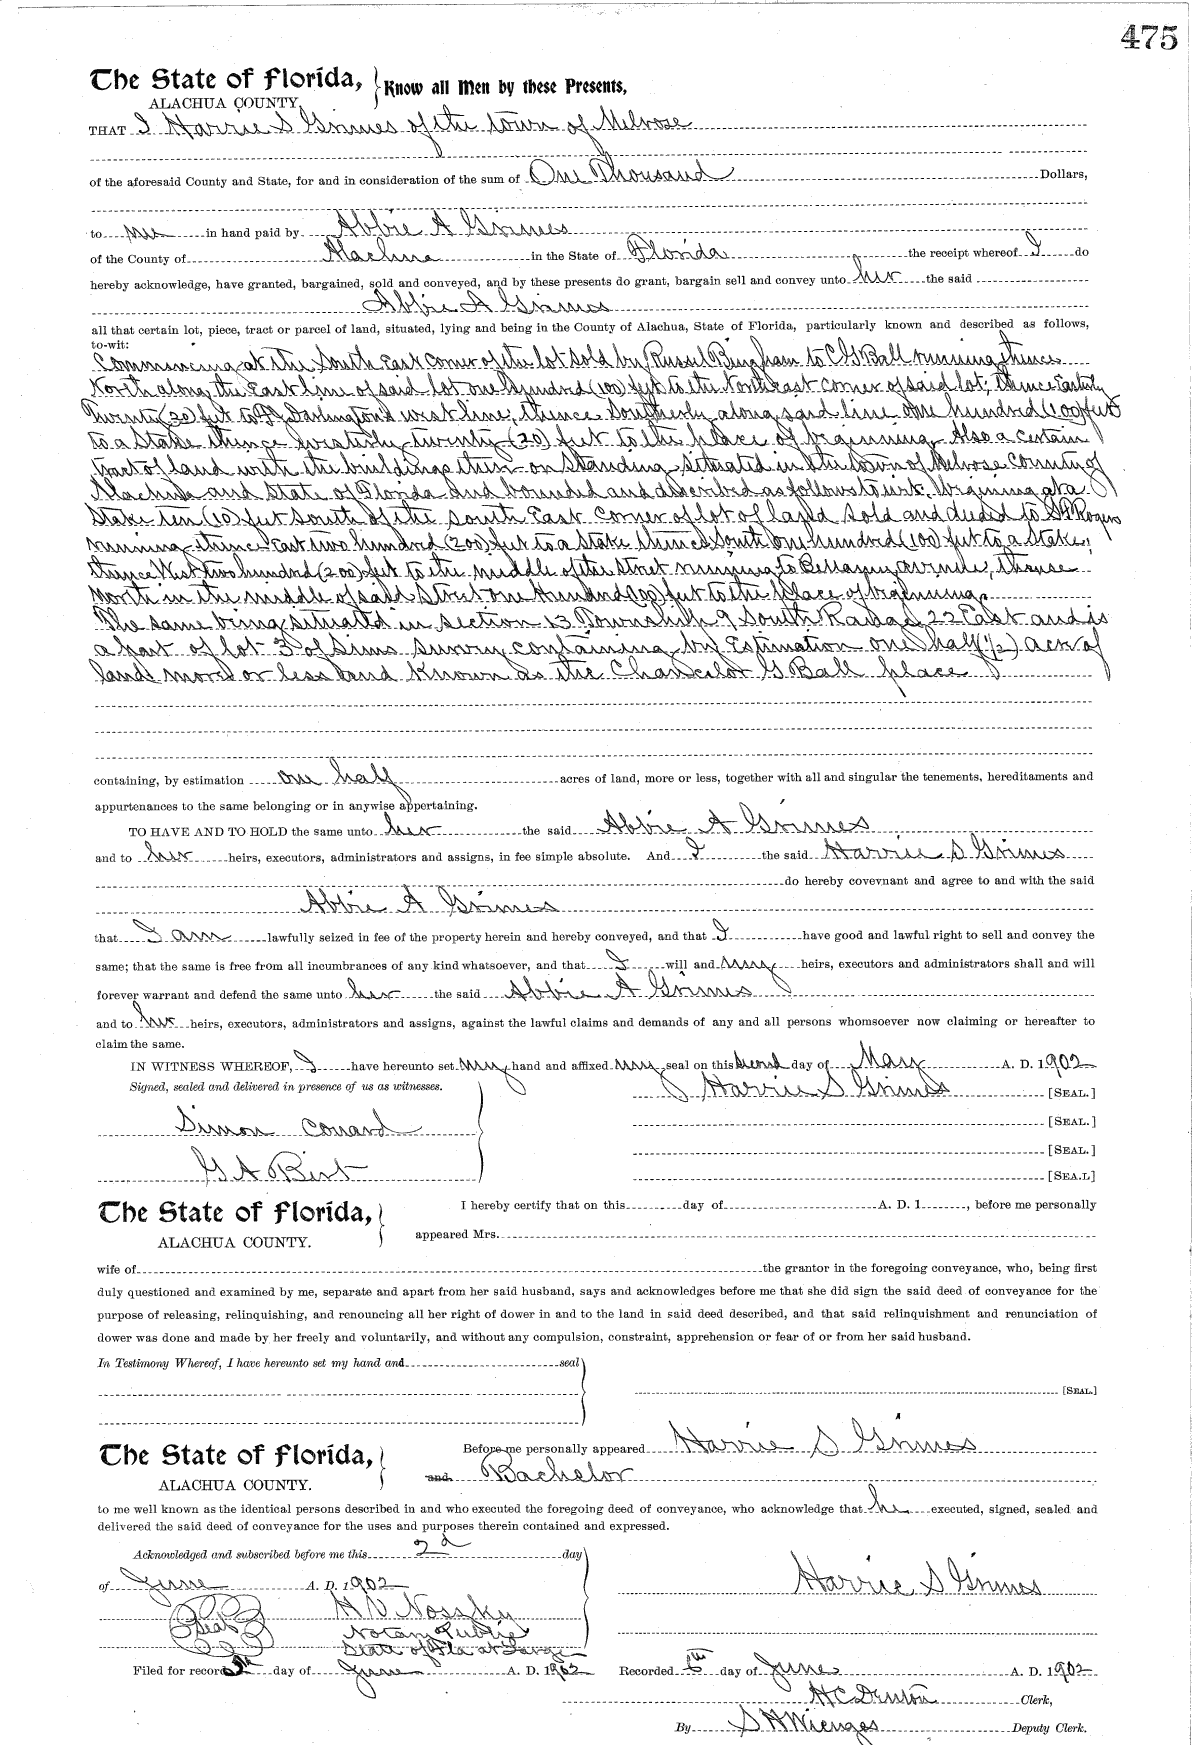 475
The State of Florida, Know all Men by these Presents,
ALACHUA COUNTY,
THAT I Harrie S Grimes of the town of Melrose
of the aforesaid County and State, for and in consideration of the sum of One Thousand Dollars,
to me in hand paid by Abbie A Grimes
of the County of Alachua in the State of Florida the receipt whereof I do
hereby acknowledge, have granted, bargained, sold and conveyed, and by these presents do grant, bargain sell and convey unto her the said
Abbie A Grimes
all that certain lot, piece, tract or parcel of land, situated, lying and being in the County of Alachua, State of Florida, particularly known and described as follows,
to-wit:
Commencing at the South East corner of the lot sold by Russel Bingham to C G Ball running thence
North along the East line of said lot one hundred (100) feet to the North East corner of said lot; thence Easterly
Twenty (20) feet to Darlington's west line; thence Southerly along said line one hundred (100) feet
to a Stake thence westerly twenty (20) feet to the place of beginning. Also a certain
tract of land with the buildings there-on standing situated in the town of Melrose County of
Alachua and State of Florida and bounded and described as follows to wit. Beginning at a
Stake ten (10) feet South of the south East corner of lot of land sold and deeded to Rogers
running thence East two hundred (200) feet to a stake thence South one hundred (100) feet to a Stake,
thence West two hundred (200) feet to the middle of the street running to Bellamy avenue, thence
North in the middle of said Street one Hundred (100) feet to the place of beginning.
The same being situated in section 13 Township 9 South Range 22 East and is
a part of lot 3 of Sims survey containing by Estimation one half (1/2) acre of
land more or less and known as the Chancelor G Ball place
containing, by estimation one half acres of land, more or less, together with all and singular the tenements, hereditaments and
appurtenances to the same belonging or in anywise appertaining.
TO HAVE AND TO HOLD the same unto her the said Abbie A Grimes
and to her heirs, executors, administrators and assigns, in fee simple absolute. And I the said Harrie S Grimes
do hereby covevnant and agree to and with the said
Abbie A Grimes
that I am lawfully seized in fee of the property herein and hereby conveyed, and that I have good and lawful right to sell and convey the
same; that the same is free from all incumbrances of any kind whatsoever, and that I will and my heirs, executors and administrators shall and will
forever warrant and defend the same unto her the said Abbie A Grimes
and to her heirs, executors, administrators and assigns, against the lawful claims and demands of any and all persons whomsoever now claiming or hereafter to
claim the same.
IN WITNESS WHEREOF, I have hereunto set my hand and affixed my seal on this second day of May A. D. 1902
Signed, sealed and delivered in presence of us as witnesses. Harrie S Grimes [SEAL.]
Simon Conard [SEAL.]
G A Birt [SEAL.]
[SEA.L]
The State of Florida, I hereby certify that on this day of A. D. 1 , before me personally
ALACHUA COUNTY. appeared Mrs.
wife of the grantor in the foregoing conveyance, who, being first
duly questioned and examined by me, separate and apart from her said husband, says and acknowledges before me that she did sign the said deed of conveyance for the
purpose of releasing, relinquishing, and renouncing all her right of dower in and to the land in said deed described, and that said relinquishment and renunciation of
dower was done and made by her freely and voluntarily, and without any compulsion, constraint, apprehension or fear of or from her said husband.
In Testimony Whereof, I have hereunto set my hand and seal
[SEAL.]
The State of Florida, Before me personally appeared Harrie S Grimes
ALACHUA COUNTY. and Bachelor
to me well known as the identical persons described in and who executed the foregoing deed of conveyance, who acknowledge that he executed, signed, sealed and
delivered the said deed of conveyance for the uses and purposes therein contained and expressed.
Acknowledged and subscribed before me this 2d day
of June A. D. 1902 Harrie S Grimes
Seal
Notary Public
State of Fla at Large
Filed for record day of June A. D. 1902 Recorded 6th day of June A. D. 1902
H C Denton Clerk,
By S H Wienges Deputy Clerk.